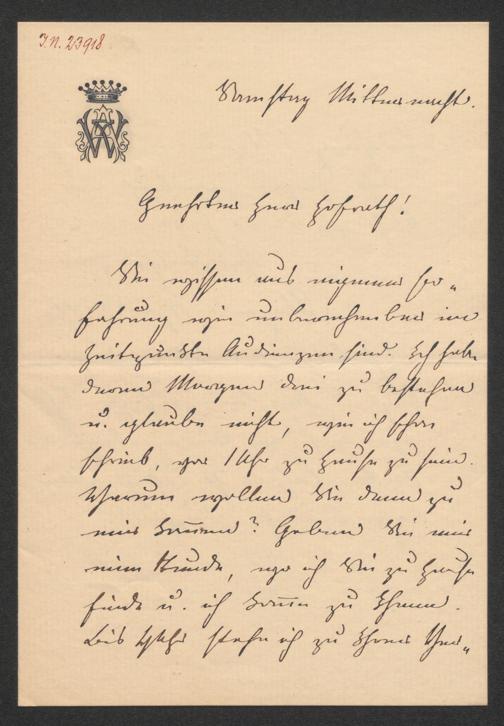 I.N. 23918
Samstag Mitternacht.
Geehrter Herr Hofrath!
Sie wissen aus eigener Er-
fahrung wie unberechenbar im
Zeitpunkte Audienzen sind. Ich habe
deren Morgen drei zu bestehen
u. glaube nicht, wie ich schon
schrieb, vor 1 Uhr zu Hause zu sein.
Warum wollen Sie denn zu
mir kommen? Geben Sie mir
eine Stunde, wo ich Sie zu Hause
finde u. ich komme zu Ihnen.
Bis Uhr stehe ich zu Ihrer Ver-